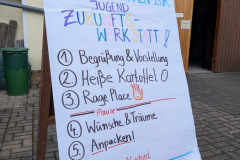 ZUR
JUGEND
ZUKUNFTS-
WERKSTATT!
① Begrüßung & Vorstellung
② Heiße Kartoffel
③ Rage Place
Pause
④ Wünsche & Träume
⑤ Anpacken!